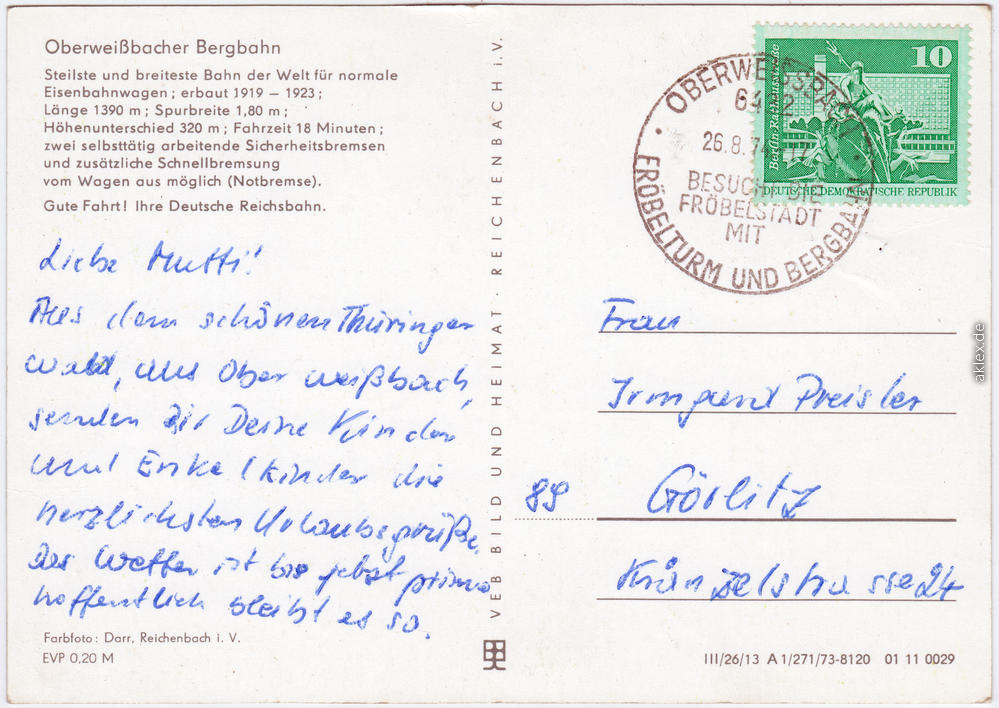 Oberweißbacher Bergbahn
Steilste und breiteste Bahn der Welt für normale
Eisenbahnwagen; erbaut 1919 – 1923;
Länge 1390 m; Spurbreite 1,80 m;
Höhenunterschied 320 m; Fahrzeit 18 Minuten;
zwei selbsttätig arbeitende Sicherheitsbremsen
und zusätzliche Schnellbremsung
vom Wagen aus möglich (Notbremse).
Gute Fahrt! Ihre Deutsche Reichsbahn.
Liebe Mutti!
Aus dem schönen Thüringer
wald, aus Ober weißbach,
senden Dir Deine Kinder
und Enkelkinder die
herzlichsten Urlaubsgrüße.
Das Wetter ist bis jetzt prima
hoffentlich bleibt es so.
Farbfoto: Darr, Reichenbach i. V.
EVP 0,20 M
VEB BILD UND HEIMAT · REICHENBACH i. V.
10
Berlin Rathausstraße
DEUTSCHE DEMOKRATISCHE REPUBLIK
OBERWEISSBACH
26.8.74
BESUCHT DIE
FRÖBELSTADT
MIT
FRÖBELTURM UND BERGBAHN
Frau
Irmgard Preisler
89 Görlitz
Kränzelstrasse 24
III/26/13 A 1/271/73-8120 01 11 0029
aklex.de